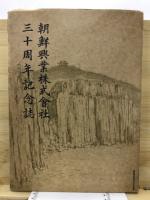 朝鮮興業株式會社
三十周年記念誌